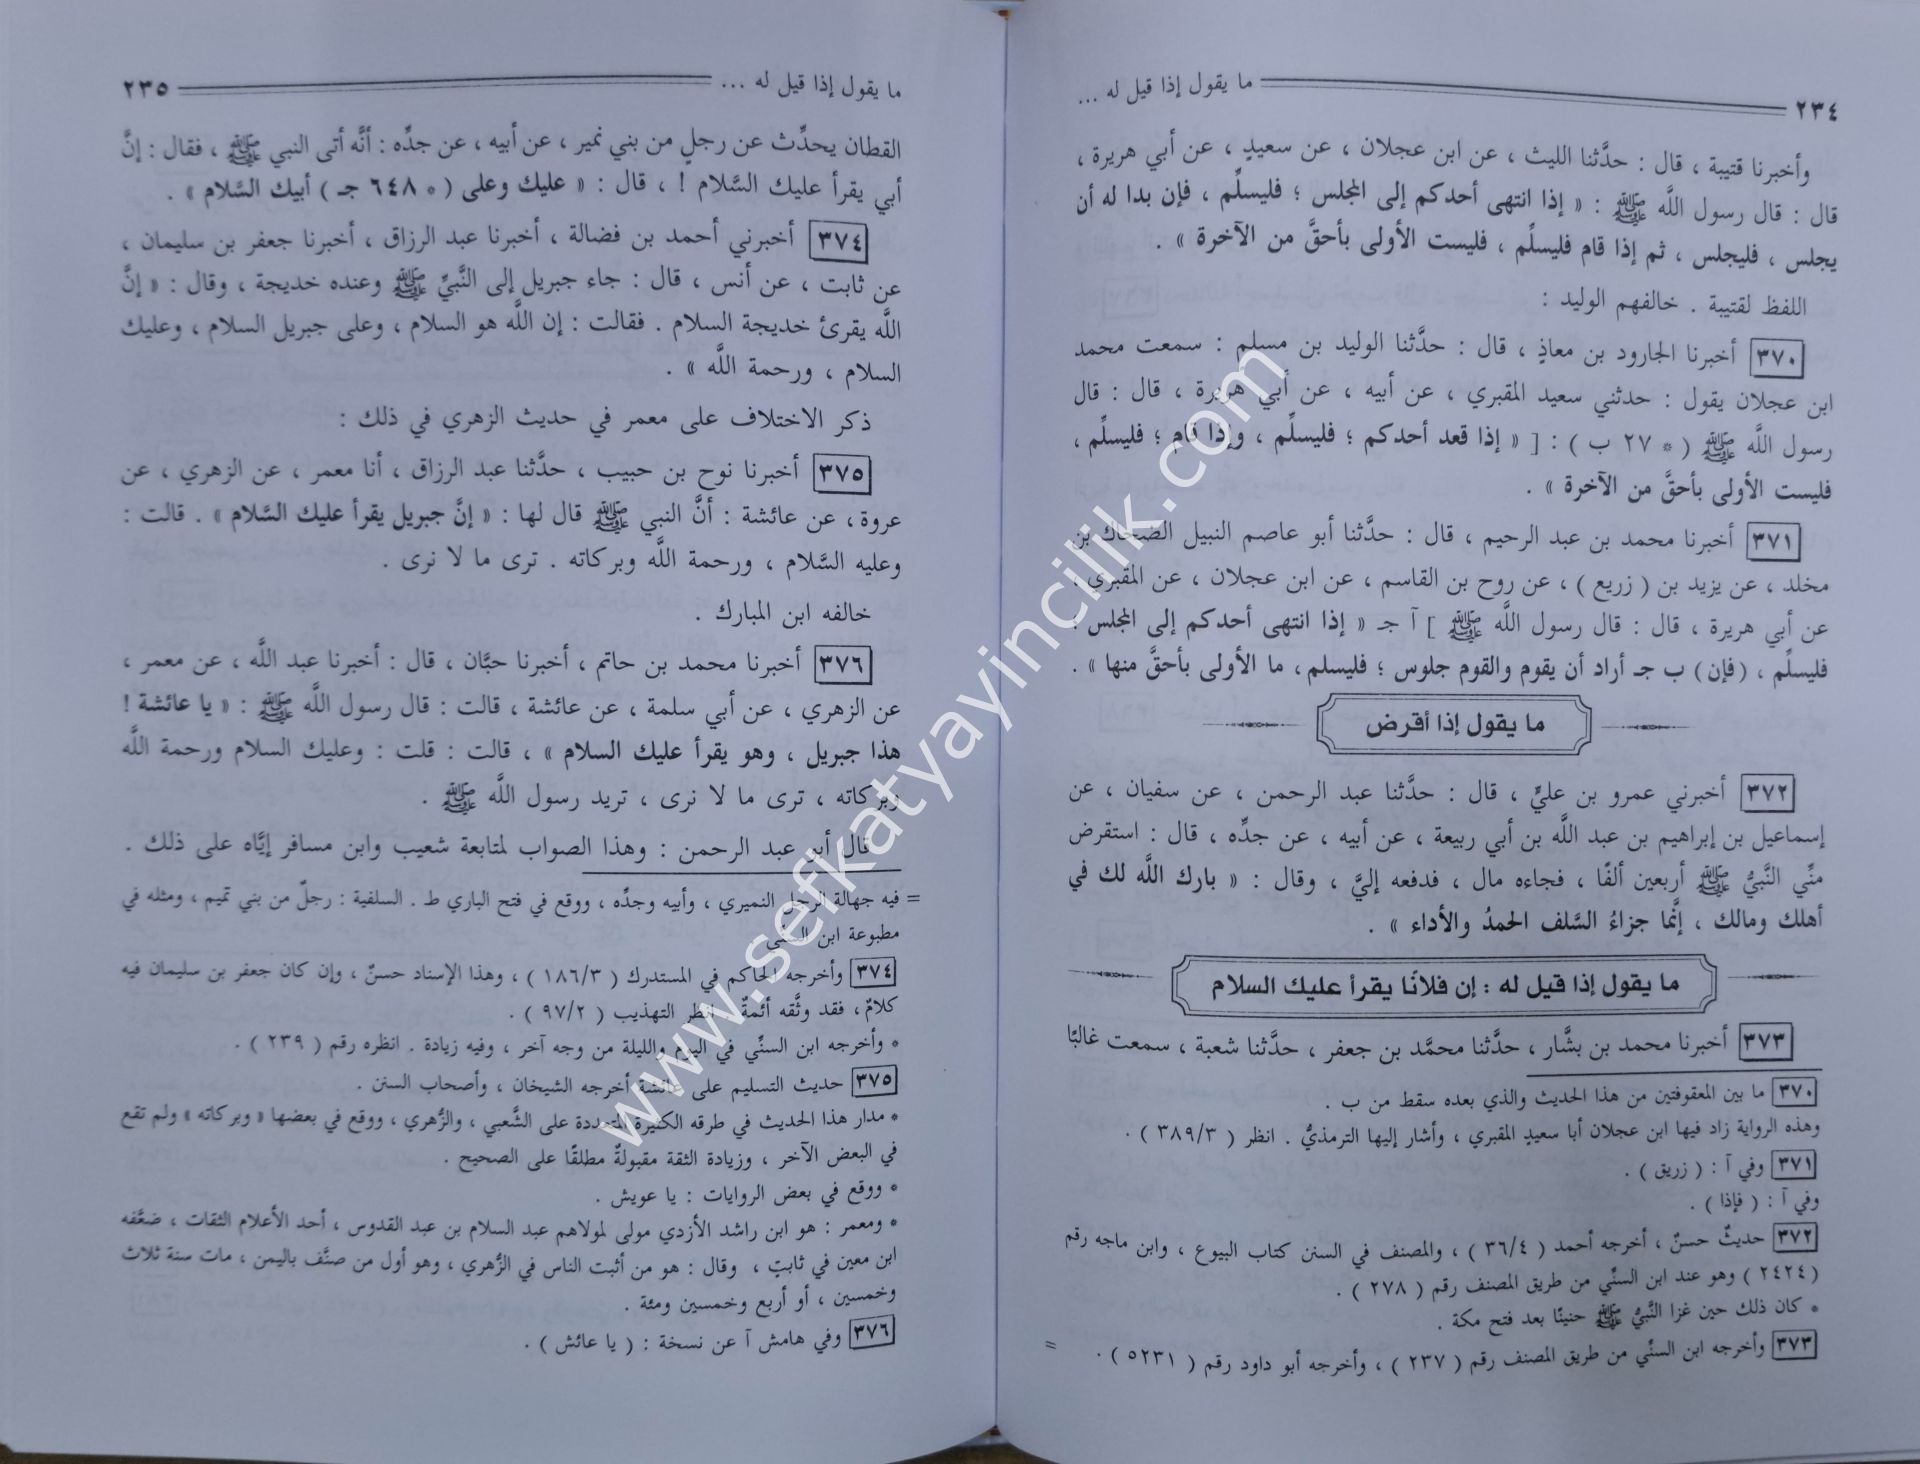 ٢٣٤ ما يقول إذا قيل له ...
وأخبرنا قتيبة ، قال : حدَّثنا الليث ، عن ابن عجلان ، عن سعيدٍ ، عن أبي هريرة ،
قال : قال رسول اللَّه ﷺ : « إذا انتهى أحدكم إلى المجلس ؛ فليسلِّم ، فإن بدا له أن
يجلس ، فليجلس ، ثم إذا قام فليسلِّم ، فليست الأولى بأحقَّ من الآخرة » .
اللفظ لقتيبة . خالفهم الوليد :
٣٧٠ أخبرنا الجارود بن معاذٍ ، قال : حدَّثنا الوليد بن مسلم : سمعت محمد
ابن عجلان يقول : حدثني سعيد المقبري ، عن أبيه ، عن أبي هريرة ، قال : قال
رسول اللَّه ﷺ ( * ٢٧ ب ) : [ « إذا قعد أحدكم ؛ فليسلِّم ، وإذا قام ؛ فليسلِّم ،
فليست الأولى بأحقَّ من الآخرة » .
٣٧١ أخبرنا محمد بن عبد الرحيم ، قال : حدَّثنا أبو عاصم النبيل الضحاك بن
مخلد ، عن يزيد بن ( زريع ) ، عن روح بن القاسم ، عن ابن عجلان ، عن المقبري ،
عن أبي هريرة ، قال : قال رسول اللَّه ﷺ ] آ جـ « إذا انتهى أحدكم إلى المجلس ؛
فليسلِّم ، (فإن) ب جـ أراد أن يقوم والقوم جلوس ؛ فليسلم ، ما الأولى بأحقَّ منها » .
ما يقول إذا أقرض
٣٧٢ أخبرني عمرو بن عليٍّ ، قال : حدَّثنا عبد الرحمن ، عن سفيان ، عن
إسماعيل بن إبراهيم بن عبد اللَّه بن أبي ربيعة ، عن أبيه ، عن جدِّه ، قال : استقرض
منِّي النَّبيُّ ﷺ أربعين ألفًا ، فجاءه مال ، فدفعه إليَّ ، وقال : « بارك اللَّه لك في
أهلك ومالك ، إنَّما جزاءُ السَّلف الحمدُ والأداء » .
ما يقول إذا قيل له : إن فلانًا يقرأ عليك السلام
٣٧٣ أخبرنا محمد بن بشَّار ، حدَّثنا محمَّد بن جعفر ، حدَّثنا شعبة ، سمعت غالبًا
٣٧٠ ما بين المعقوفتين من هذا الحديث والذي بعده سقط من ب .
وهذه الرواية زاد فيها ابن عجلان أبا سعيدٍ المقبري ، وأشار إليها الترمذيُّ . انظر ( ٣٨٩/٣ ) .
٣٧١ وفي آ : ( زريق ) .
وفي آ : ( فإذا ) .
٣٧٢ حديثٌ حسنٌ ، أخرجه أحمد ( ٣٦/٤ ) ، والمصنف في السنن كتاب البيوع ، وابن ماجه رقم
( ٢٤٢٤ ) وهو عند ابن السنِّي من طريق المصنف رقم ( ٢٧٨ ) .
* كان ذلك حين غزا النَّبيُّ ﷺ حنينًا بعد فتح مكة .
٣٧٣ وأخرجه ابن السنِّي من طريق المصنف رقم ( ٢٣٧ ) ، وأخرجه أبو داود رقم ( ٥٢٣١ ) . =
ما يقول إذا قيل له ... ٢٣٥
القطان يحدِّث عن رجلٍ من بني نمير ، عن أبيه ، عن جدِّه : أنَّه أتى النبي ﷺ ، فقال : إنَّ
أبي يقرأ عليك السَّلام ! ، قال : « عليك وعلى ( * ٦٤٨ جـ ) أبيك السَّلام » .
٣٧٤ أخبرني أحمد بن فضالة ، أخبرنا عبد الرزاق ، أخبرنا جعفر بن سليمان ،
عن ثابت ، عن أنس ، قال : جاء جبريل إلى النَّبيِّ ﷺ وعنده خديجة ، وقال : « إنَّ
اللَّه يقرئ خديجة السلام . فقالت : إن اللَّه هو السلام ، وعلى جبريل السلام ، وعليك
السلام ، ورحمة اللَّه » .
ذكر الاختلاف على معمر في حديث الزهري في ذلك :
٣٧٥ أخبرنا نوح بن حبيب ، حدَّثنا عبد الرزاق ، أنا معمر ، عن الزهري ، عن
عروة ، عن عائشة : أنَّ النبي ﷺ قال لها : « إنَّ جبريل يقرأ عليك السَّلام » . قالت :
وعليه السَّلام ، ورحمة اللَّه وبركاته . ترى ما لا نرى .
خالفه ابن المبارك .
٣٧٦ أخبرنا محمد بن حاتم ، أخبرنا حبَّان ، قال : أخبرنا عبد اللَّه ، عن معمر ،
عن الزهري ، عن أبي سلمة ، عن عائشة ، قالت : قال رسول اللَّه ﷺ : « يا عائشة !
هذا جبريل ، وهو يقرأ عليك السلام » ، قالت : قلت : وعليك السلام ورحمة اللَّه
وبركاته ، ترى ما لا نرى ، تريد رسول اللَّه ﷺ .
قال أبو عبد الرحمن : وهذا الصواب لمتابعة شعيب وابن مسافر إيَّاه على ذلك .
= فيه جهالة الرجل النميري ، وأبيه وجدِّه ، ووقع في فتح الباري ط . السلفية : رجلٌ من بني تميم ، ومثله في
مطبوعة ابن السنِّي
٣٧٤ وأخرجه الحاكم في المستدرك ( ١٨٦/٣ ) ، وهذا الإسناد حسنٌ ، وإن كان جعفر بن سليمان فيه
كلامٌ ، فقد وثَّقه أئمةٌ . انظر التهذيب ( ٩٧/٢ ) .
* وأخرجه ابن السنِّي في اليوم والليلة من وجه آخر ، وفيه زيادة . انظره رقم ( ٢٣٩ ) .
٣٧٥ حديث التسليم على عائشة أخرجه الشيخان ، وأصحاب السنن .
* مدار هذا الحديث في طرقه الكثيرة المتعددة على الشَّعبي ، والزُّهري ، ووقع في بعضها « وبركاته » ولم تقع
في البعض الآخر ، وزيادة الثقة مقبولةٌ مطلقًا على الصحيح .
* ووقع في بعض الروايات : يا عويش .
* ومعمر : هو ابن راشد الأزدي مولى لمولاهم عبد السلام بن عبد القدوس ، أحد الأعلام الثقات ، ضعَّفه
ابن معين في ثابتٍ ، وقال : هو من أثبت الناس في الزُّهري ، وهو أول من صنَّف باليمن ، مات سنة ثلاث
وخمسين ، أو أربع وخمسين ومئة .
٣٧٦ وفي هامش آ عن نسخة : ( يا عائش ) .
www.sefkatyayincilik.com